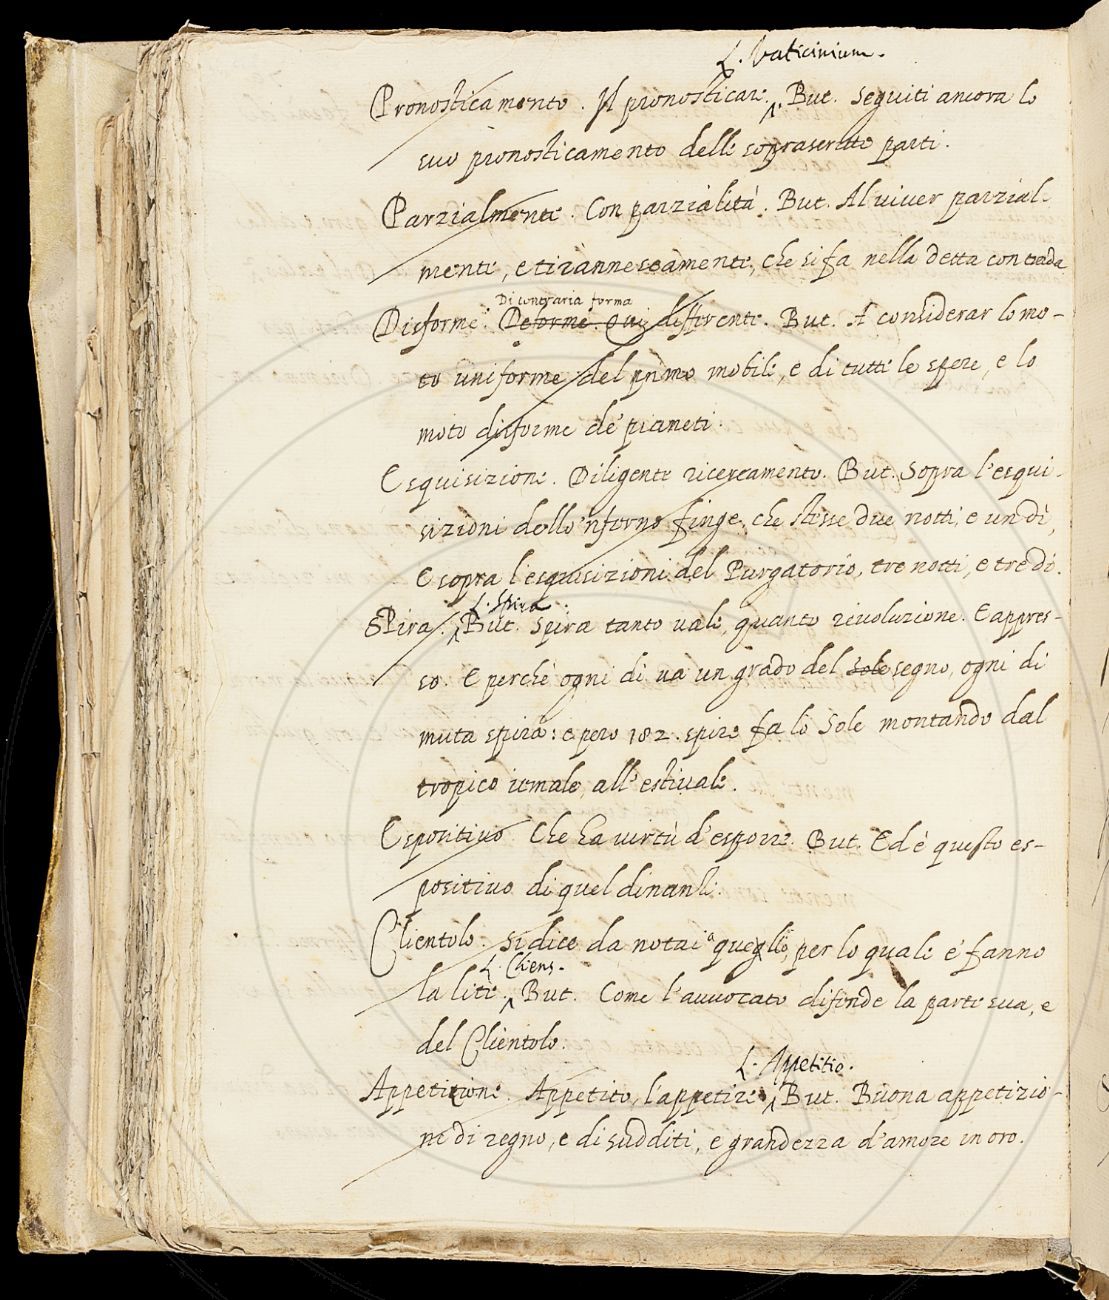 L. Vaticinium.
Pronosticamento. Il pronosticare. But. Seguiti ancora lo
suo pronosticamento delle soprascritte parti.
Parzialmente. Con parzialità. But. Al viver parzial-
mente, e tirannescamente, che si fa nella detta contrada
Di contraria forma
Disforme. Deforme. Qui differente. But. A considerar lo mo-
to uniforme del primo mobile, e di tutte le spere, e lo
moto disforme de' pianeti.
Esquisizione. Diligente ricercamento. But. Sopra l'esqui-
sizione dello 'nferno finge, che stesse due notti, e un dì,
e sopra l'esquisizione del Purgatorio, tre notti, e tre dì.
L. Spira.
SPira. But. Spira tanto vale, quanto rivoluzione. E appres-
so. E perchè ogni dì va un grado del Sole segno, ogni dì
muta spira: e però 182. spire fa lo Sole montando dal
tropico iemale, all'estivale.
Espositivo. Che ha virtù d'esporre. But. Ed è questo es-
positivo di quel dinanzi.
Clientolo. Si dice da notai a quegli, per lo quale e' fanno
L. Cliens.
la lite. But. Come l'avvocato difende la parte sua, e
del Clientolo.
L. Appetitio.
Appetizione. Appetito, l'appetire. But. Buona appetizio-
ne di regno, e di sudditi, e grandezza d'amore in oro.